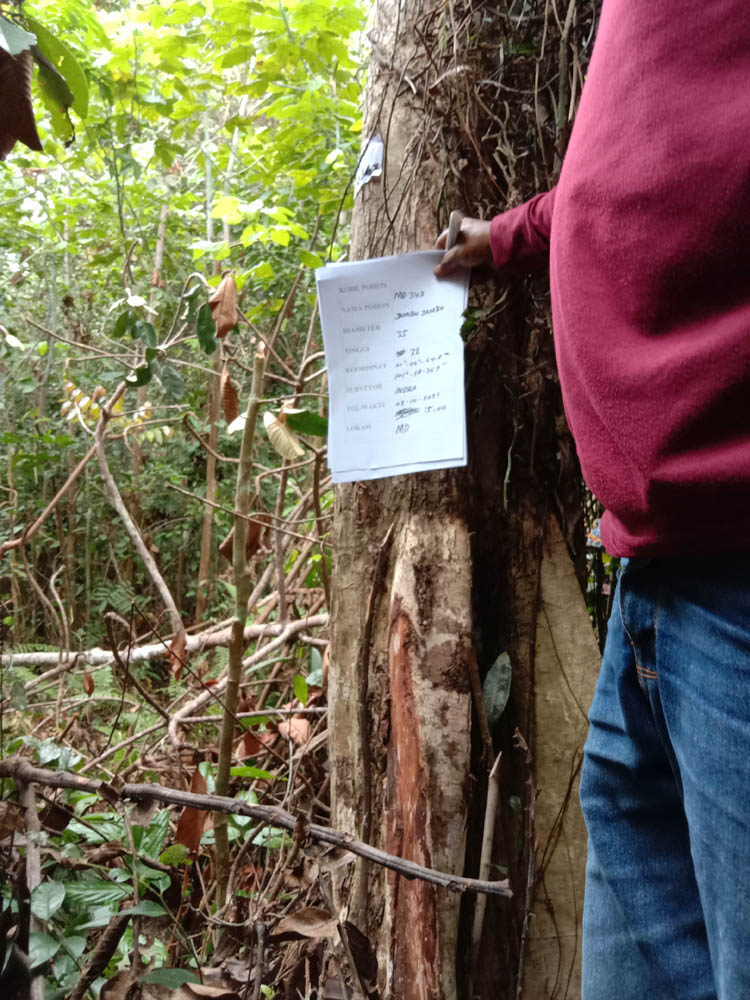 KODE POHON MD 343
NAMA POHON JAMBU JAMBU
DIAMETER 35
TINGGI 32
KOORDINAT
SURVEYOR INDRA
TGL/WAKTU 15.00
LOKASI MD